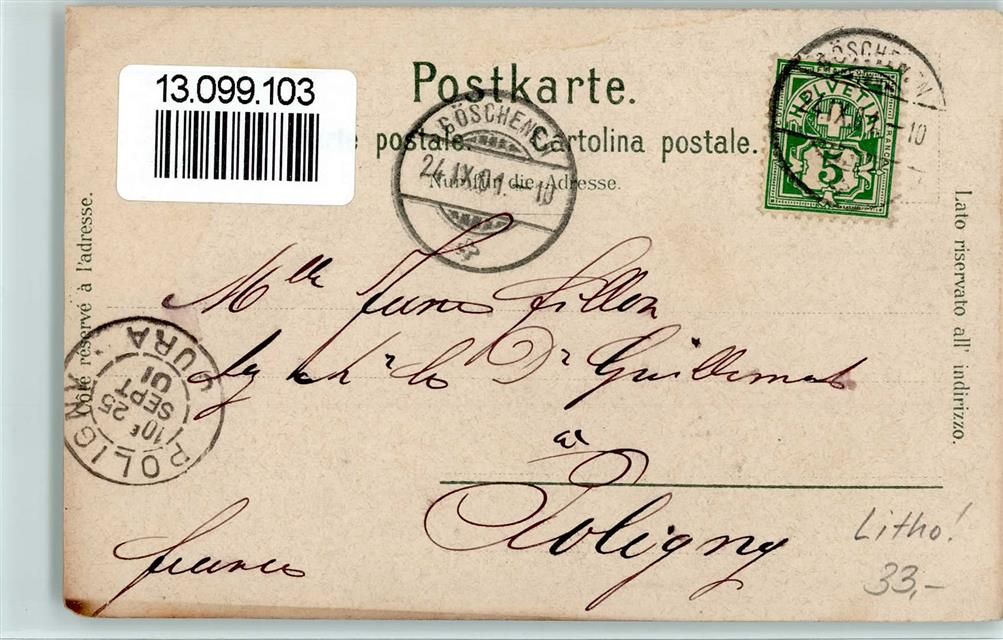 Postkarte.
13.099.103
postale. Cartolina postale.
Nur für die Adresse.
GÖSCHENEN
24.IX.01.-10
GÖSCHENEN
IX -10
HELVETIA
FRANCO
5
Côté réservé à l'adresse.
Lato riservato all' indirizzo.
Mlle
chez Mr le Dr Guillemet
à
Poligny
france
POLIGNY JURA
10E
25
SEPT
01
Litho!
33,-